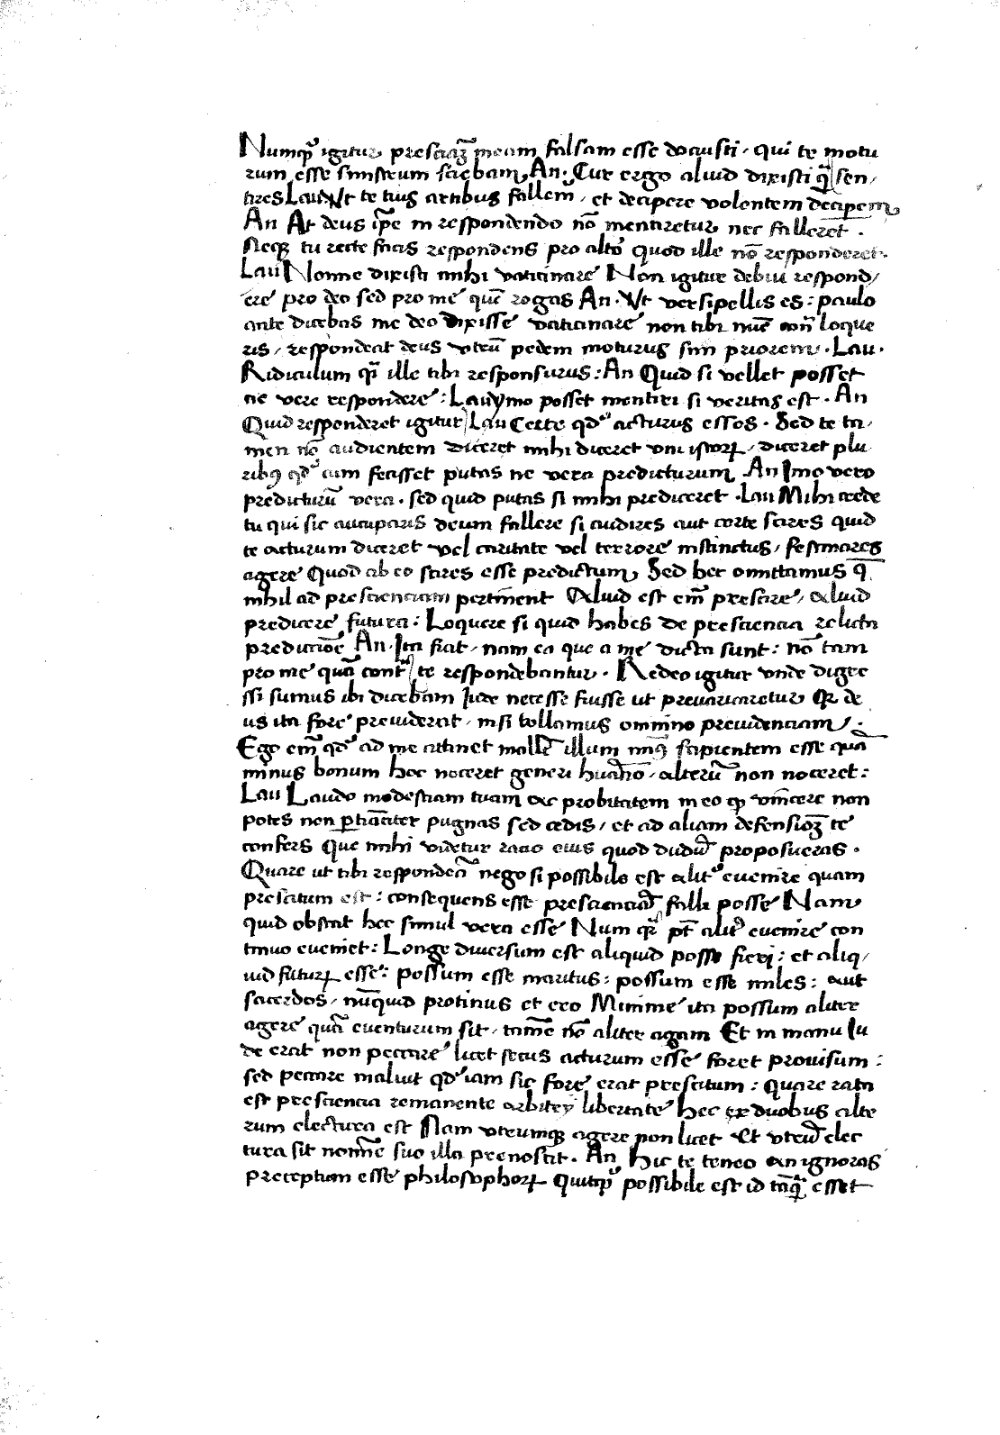 Numqͥd igitur presciaʒ meam falsam esse docuisti · qui te motu
rum esse sinistrum sciebam An · Cur ergo aliud dixisti qͣ sen/
tires Lau Ut te tuis artibus fallerem / et decipere volentem deciperem
An At deus ip̄e in respondendo nō mentiretur nec falleret ·
Neqꝫ tu recte facis respondens pro altero quod ille nō responderet ·
Lau Nonne dixisti mihi vaticinare Non igitur debui respond/
ere pro deo sed pro me quē rogas An · Ut versipellis es : paulo
ante dicebas me deo dixisse vaticinare non tibi nūc cont̄ loque
ris / respondeat deus utrū pedem moturus sim priorem · Lau ·
Ridiculum qͣ ille tibi responsurus : An Quid si vellet posset
ne vere respondere : Lau ymo posset mentiri si veritas est · An
Quid responderet igitur Lau Certe qd acturus esses · Sed te ta/
men nō audientem diceret mihi diceret uni istorꝝ / diceret plu
ribꝯ qd cum fecisset putas ne vera predicturum An Imo vero
predicturū vera · sed quid putas si mihi prediceret · Lau Mihi crede
tu qui sic aucuparis deum fallere si audires aut certe scires quid
te acturum diceret vel caritate vel terrore instinctus / festinares
agere Quod ab eo scires esse predictum Sed hec omittamus q̄
nihil ad prescienciam pertinent Aliud est em̄ prescire / aliud
predicere futura : Loquere si quid habes de presciencia relicta
predictiōe An · Ita fiat · nam ea que a me dicta sunt : nō tam
pro me quā cont̄ te respondebantur · Redeo igitur unde digre
ssi sumus ibi dicebam Iude necesse fuisse ut prevaricaretur Qꝛ de
us ita fore previderat · nisi tollamus omnino previdenciam ·
Ego em̄ qd ad me atinet mallē illum minꝯ sapientem esse quā
minus bonum hec noceret generi huāno · alterū non noceret :
Lau Laudo modestiam tuam ac probitatem in eo qꝫ vincere non
potes non ꝑtinaciter pugnas sed cedis / et ad aliam defensionē te
confers Que mihi videtur racio eius quod dudū proposueras ·
Quare ut tibi respondeā nego si possibile est alit̓ evenire quam
prescitum est : consequens esse prescienciā falli posse Nam
quid obstat hec simul vera esse Num qꝛ pt̄ alit̓ evenire con
tinuo eveniet : Longe diversum est aliquid posse fieri : et aliq/
uid futurꝝ esse : possum esse maritus : possum esse miles : aut
sacerdos / nūquid protinus et ero Minime ita possum aliter
agere quā eventurum sit / tamē nō aliter agam Et in manu Iu
de erat non peccare licet secus acturum esse foret provisum :
sed peccare maluit qd iam sic fore erat prescitum : quare rata
est presciencia remanente arbitry libertate hec ex duobus alte
rum electura est Nam utrumqꝫ agere non licet Et utrū elec
tura sit nomine suo illa prenoscit · An Hic te teneo an ignoras
preceptum esse philosophorꝝ quitqͥd possibile est id tāqͣ esset